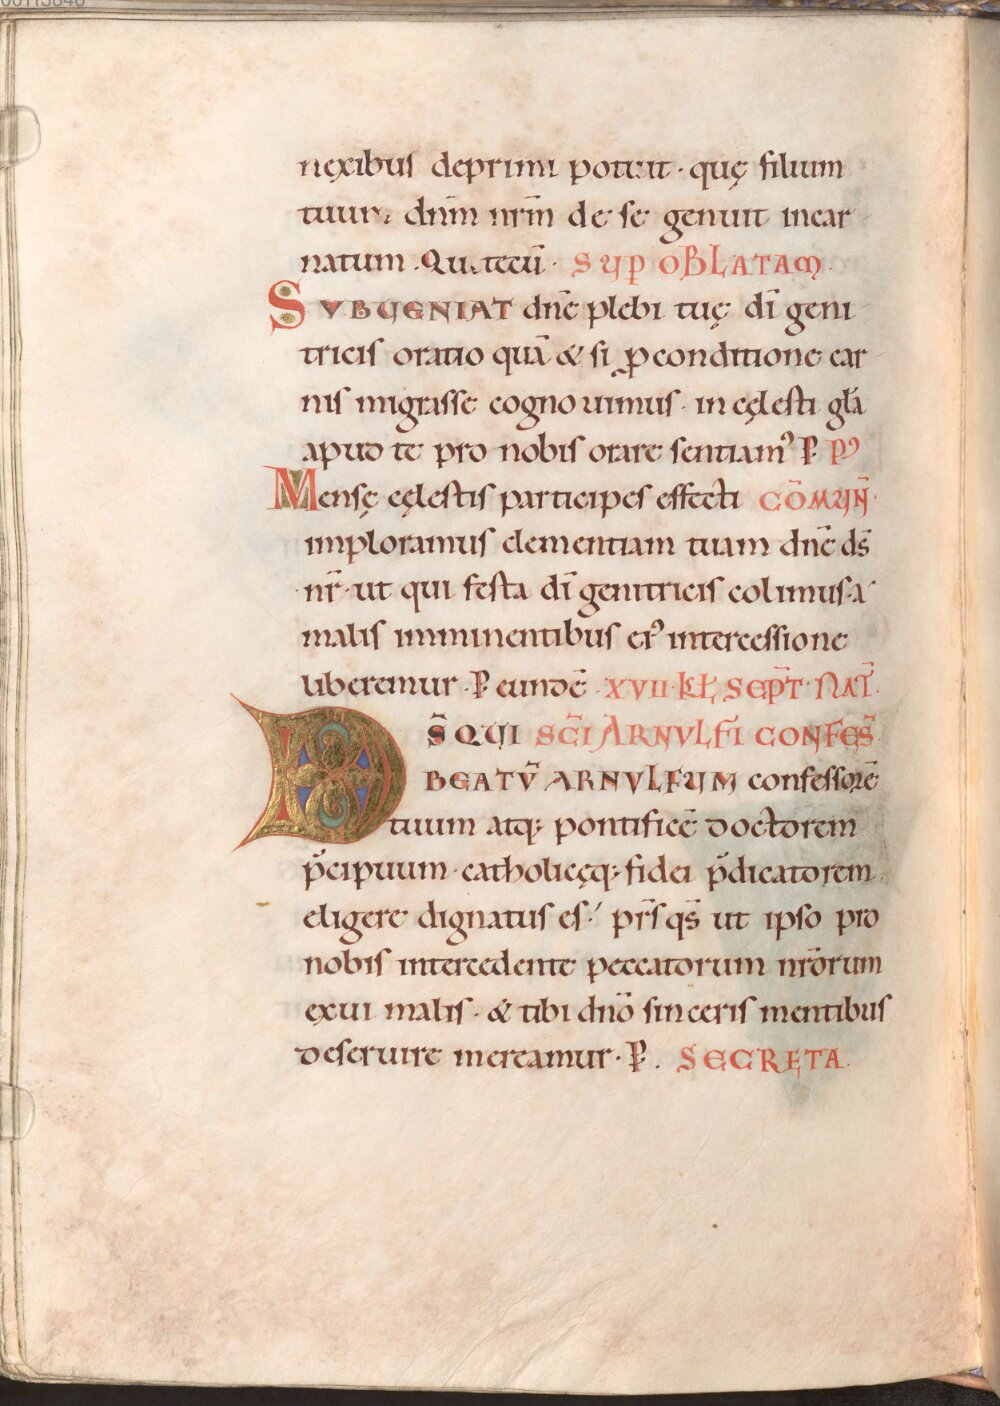 nexibus deprimi potuit · quę filium
tuum dn̄m nr̄m de se genuit incar
natum · Qui tecū · SUP OBLATAM
SUBUENIAT dn̄e plebi tuę dī geni
tricis oratio quā & si ꝓ conditione car
nis migrasse cognouimus · in cęlesti gl̄a
apud te pro nobis orare sentiam᾽ P̄ Pꝰ
Mensę cęlestis participes effecti COM̄UN̄·
imploramus clementiam tuam dn̄e ds̄
nr̄ · ut qui festa dī genitricis colimus · a
malis imminentibus ei᾽ intercessione
liberemur · P̄ eundē · XVII · KL̄ SEPT̄ · NAT̄·
DS̄ QUI SC̄I ARNULFI CONFES̄
BEATŪ ARNULFUM confessorē
tuum atq; pontificē doctorem
p̄cipuum · catholicęq; fidei p̄dicatorem
eligere dignatus es · pr̄s qs̄ ut ipso pro
nobis intercedente peccatorum nr̄orum
exui malis · & tibi dn̄o sinceris mentibus
deseruire mereamur · P̄ . SECRETA ·